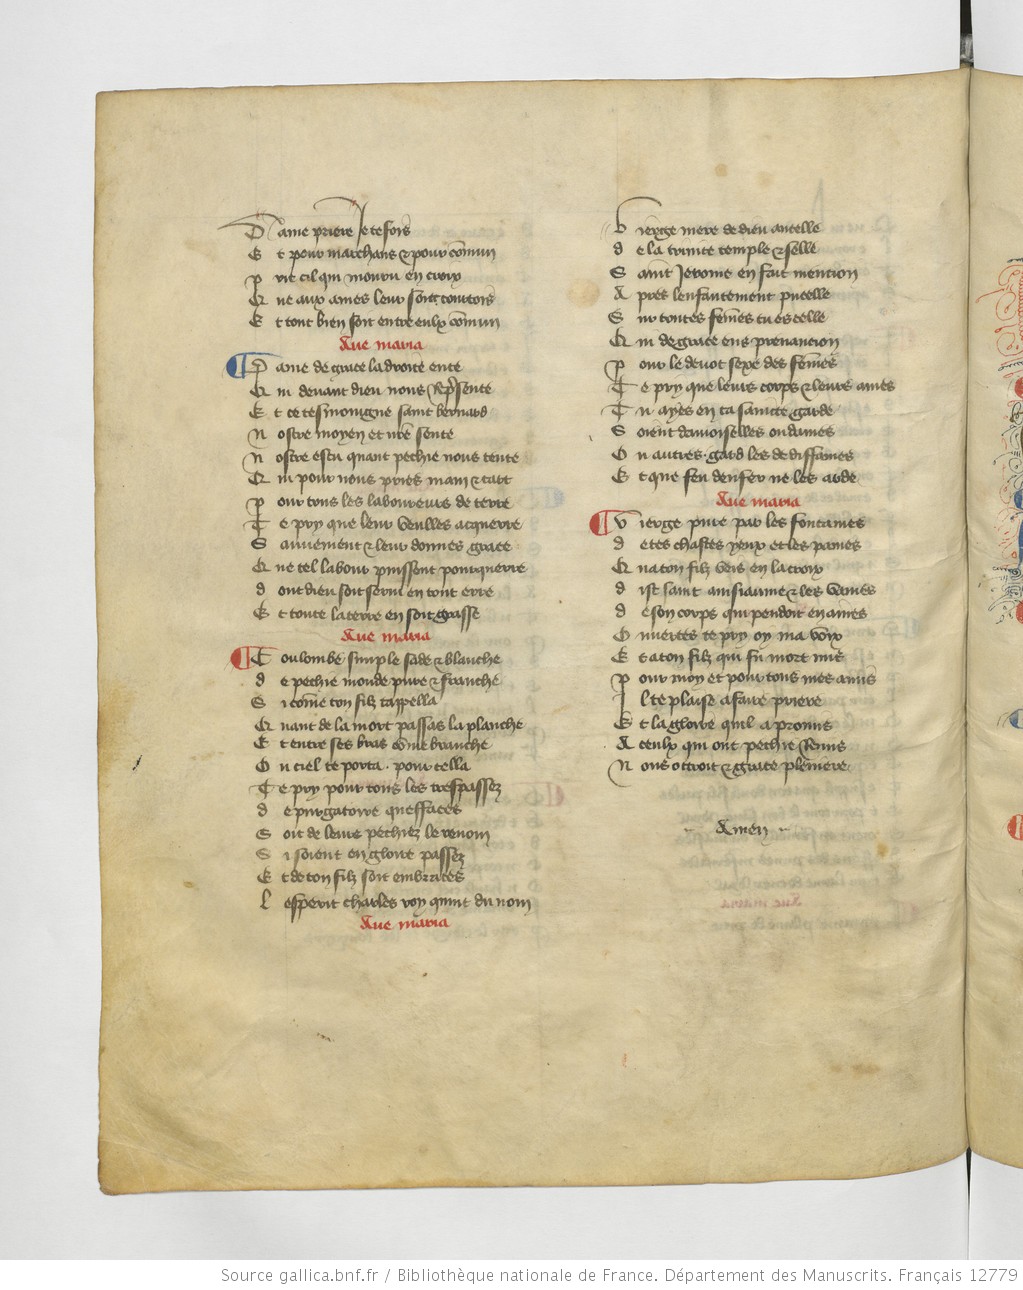 Dame priere Je te fois
Et pour marchans & pour cõmun
prie cil qui mouru en croix
Que aux ames leur soit courtois
Et tout bien soit entre eulx cõmun
Aue maria
Dame de grace la droite ente
Qui deuant dieu nous
Et ce tesmoingne saint bernard
Nostre moyen et nr̃e sente
Nostre escu quant pechie nous tente
Qui pour nous pries main & tart
pour tous les laboureurs de terre
Te pry que leur veulles acquerre
Sauuement & leur donnes grace
Que tel labour puissent pourquerre
dont dieu soit serui en tout erre
Et toute la terre en soit grasse
Aue maria
Coulombe simple sade & blanche
de pechie monde pure & franche
Si cõme ton filz tappella
Quant de la mort passas la planche
Et entre ses bras cõme branche
Ou ciel te porta . pour cella
Te pry pour tous les trespassez
de purgatoire queffaces
Soit de leurs pechiez le renom
Si soient en gloire passez
Et de ton filz soit embraces
lesperit charles roy quint du nom
Aue maria
Vierge mere de dieu ancelle
de la trinite temple & selle
Saint Jerome en fait mention
Apres lenfantement pucelle
Sur toutes fem̃es tu es celle
Qui de grace eus prenancion
pour le deuot sexe des fem̃es
Te pry que leurs corps & leurs ames
Tu ayes en ta saincte garde
Soient damoiselles ou dames
Ou autres . gard les de diffames
Et que feu denfer ne les arde
Aue maria
Vierge pure par les fontaines
de tes chastes yeux et les paines
Qua ton filz veis en la croix
dist saint & les vaines
de son corps qui pendoit en aines
Ouuertes te pry oy ma voix
Et a ton filz qui fu mort mis
pour moy et pour tous mes amis
Il te plaise a faire priere
Et la gloire quil a promis
A ceulx qui ont pechie remis
Nous octroit & grace pleniere
Amen
Source gallica.bnf.fr / Bibliothèque nationale de France. Département des Manuscrits. Français 12779